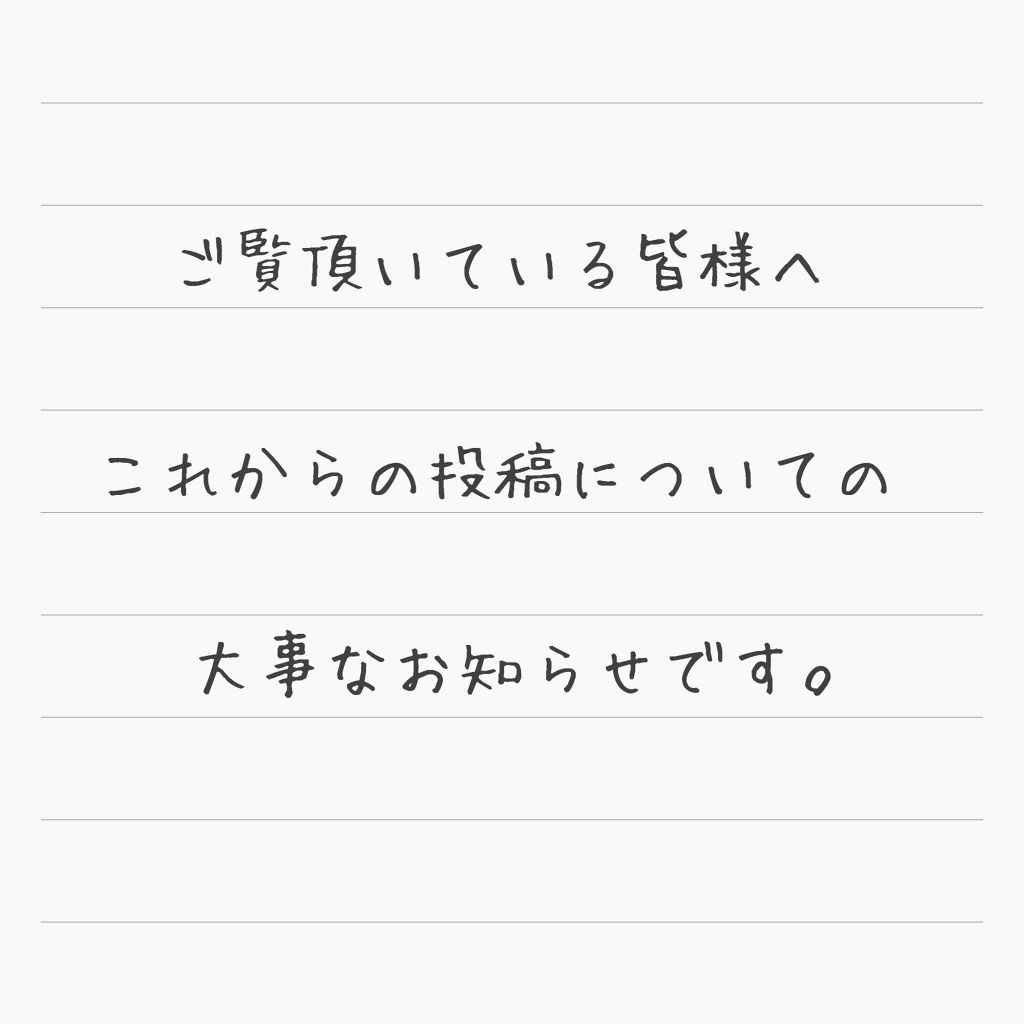 ご覧頂いている皆様へ
これからの投稿についての
大事なお知らせです。